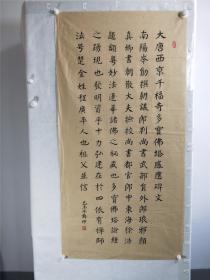 大唐西京千福寺多寶佛塔感應碑文
南陽岑勛撰朝議郎判尚書武部員外郎琅邪顏
真卿書朝散大夫檢校尚書都官郎中東海徐浩
題額粵妙法蓮華諸佛之秘藏也多寶佛塔證經
之踴現也發明資乎十力弘建在於四依有禪師
法號楚金姓程廣平人也祖父並信